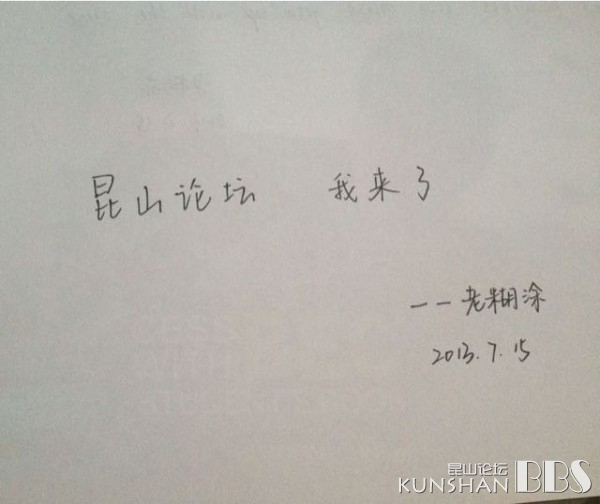 昆山论坛 我来了
——老糊涂
2013.7.15
昆山论坛
KUNSHAN BBS